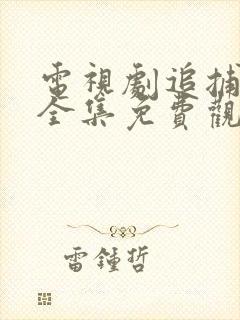 電視劇追捕
全集免費觀
雷鍾哲